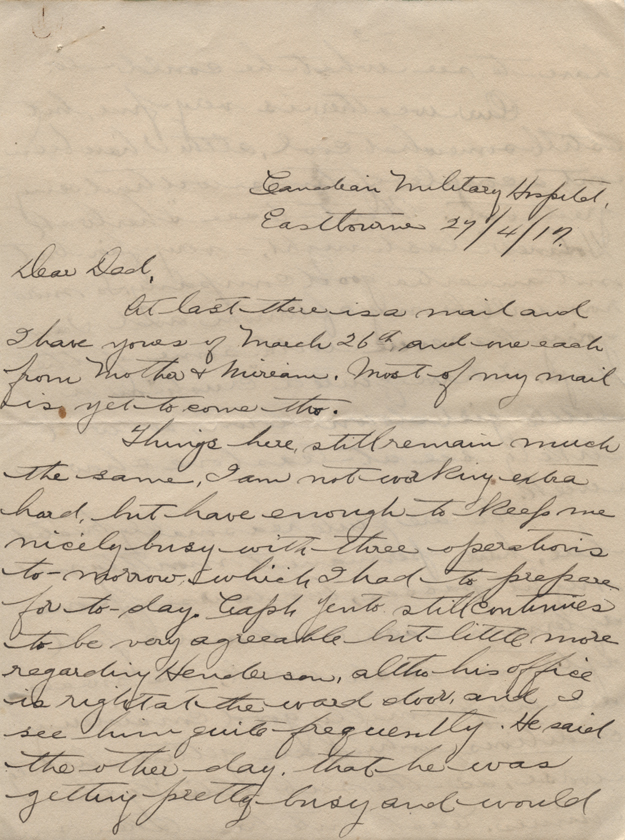 Canadian Military Hospital,
Eastbourne 27/4/17.
Dear Dad,
At last there is a mail and
I have yours of March 26th and one each
from Mother & Miriam. Most of my mail
is yet to come tho.
Things here, still remain much
the same, I am not working extra
hard, but have enough to keep me
nicely busy with three operations
to-morrow, which I had to prepare
for to-day. Capt. still continues
to be very agreeable but little more
regarding Henderson, altho his office
is right at the ward door, and I
see him quite frequently. He said
the other day, that he was
getting pretty busy and would